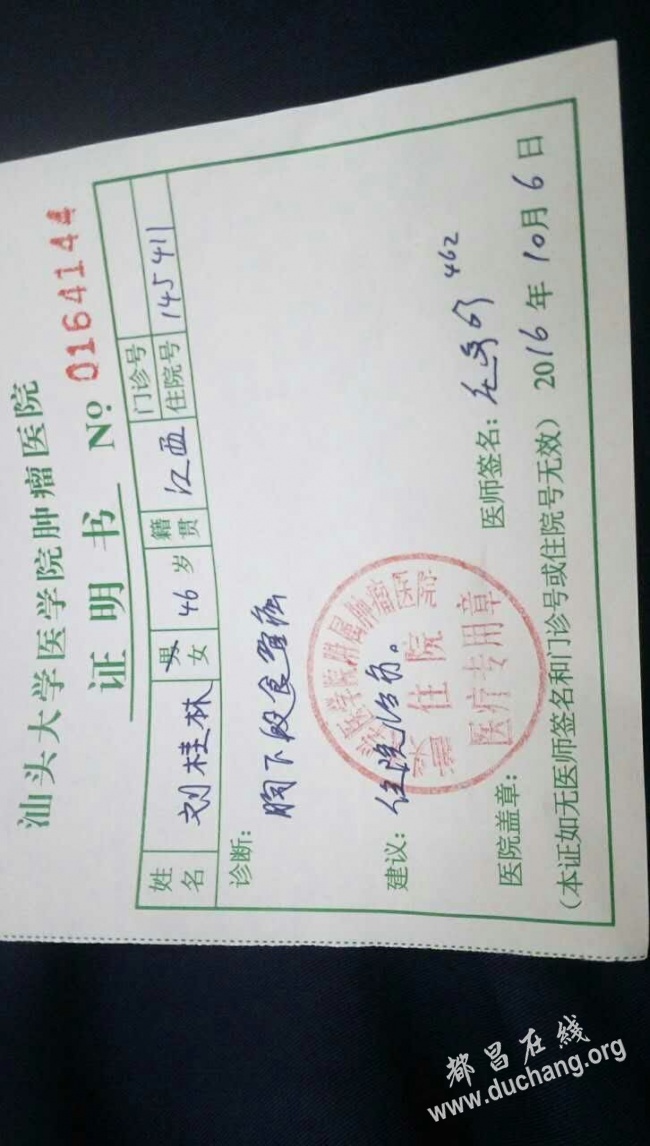 汕头大学医学院肿瘤医院
证明书 No. 0164144
姓名 刘桂林 男 女 46 岁 籍贯 江西 门诊号
住院号 145411
诊断:
胸下段食管癌
建议: 住院治疗。
住院
医疗专用章
医院盖章: 医师签名: 462
(本证如无医师签名和门诊号或住院号无效) 2016年10月6日
都昌在线
www.duchang.org